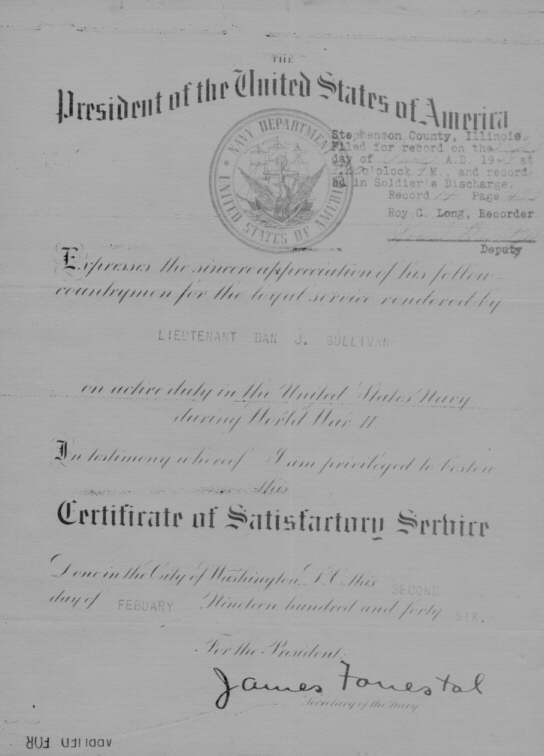 THE
President of the United States of America
NAVY DEPARTMENT
UNITED STATES OF AMERICA
Stephenson County, Illinois
Filed for record on the
day of A.D. 19 at
o'clock M., and record
ed in Soldier's Discharge.
Record Page
Roy C. Long, Recorder
Deputy
Expresses the sincere appreciation of his fellow
countrymen for the loyal service rendered by
LIEUTENANT DAN J. SULLIVAN
on active duty in the United States Navy
during World War II
In testimony whereof I am privileged to bestow
this
Certificate of Satisfactory Service
Done in the City of Washington, D.C. this SECOND
day of FEBUARY Nineteen hundred and forty SIX.
For the President:
James Forrestal
Secretary of the Navy
APPLIED FOR